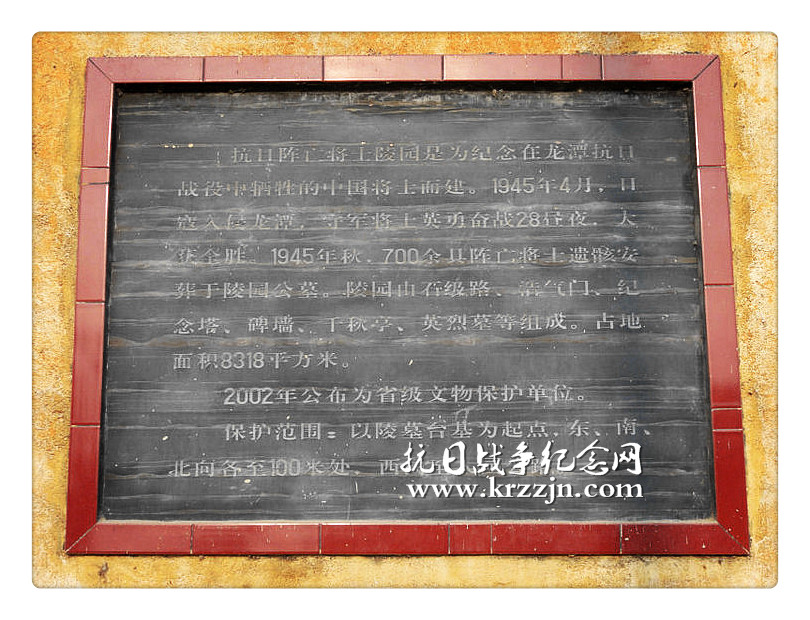 抗日阵亡将士陵园是为纪念在龙潭抗日
战役中牺牲的中国将士而建。1945年4月，日
寇入侵龙潭，守军将士英勇奋战28昼夜，大
获全胜。1945年秋，700余具阵亡将士遗骸安
葬于陵园公墓。陵园由石级路、浩气门、纪
念塔、碑墙、千秋亭、英烈墓等组成。占地
面积8318平方米。
2002年公布为省级文物保护单位。
保护范围：以陵墓台基为起点，东、南、
北向各至100米处，西
抗日战争纪念网
www.krzzjn.com